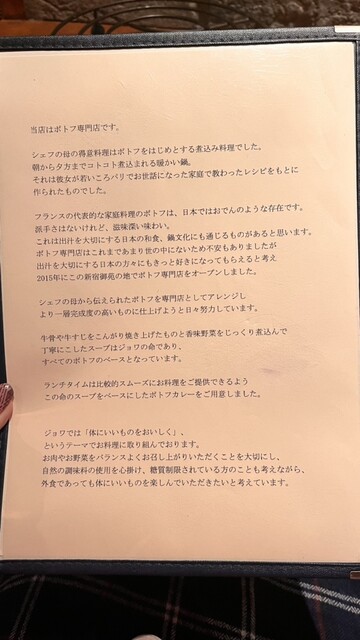 当店はポトフ専門店です。
シェフの母の得意料理はポトフをはじめとする煮込み料理でした。
朝から夕方までコトコト煮込まれる暖かい鍋。
それは彼女が若いころパリでお世話になった家庭で教わったレシピをもとに
作られたものでした。
フランスの代表的な家庭料理のポトフは、日本ではおでんのような存在です。
派手さはないけれど、滋味深い味わい。
これは出汁を大切にする日本の和食、鍋文化にも通じるものがあると思います。
ポトフ専門店はこれまであまり世の中にないため不安もありましたが
出汁を大切にする日本の方々にもきっと好きになってもらえると考え
2015年にこの新宿御苑の地でポトフ専門店をオープンしました。
シェフの母から伝えられたポトフを専門店としてアレンジし
より一層完成度の高いものに仕上げようと日々努力しています。
牛骨や牛すじをこんがり焼き上げたものと香味野菜をじっくり煮込んで
丁寧にこしたスープはジョワの命であり、
すべてのポトフのベースとなっています。
ランチタイムは比較的スムーズにお料理をご提供できるよう
この命のスープをベースにしたポトフカレーをご用意しました。
ジョワでは「体にいいものをおいしく」、
というテーマでお料理に取り組んでおります。
お肉やお野菜をバランスよくお召し上がりいただくことを大切にし、
自然の調味料の使用を心掛け、糖質制限されている方のことも考えながら、
外食であっても体にいいものを楽しんでいただきたいと考えています。